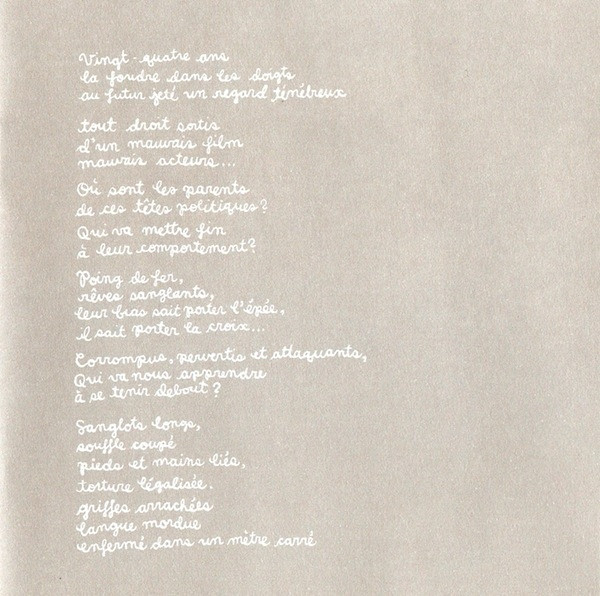 Vingt-quatre ans
la foudre dans les doigts
au futur jeté un regard ténébreux
tout droit sortis
d'un mauvais film
mauvais acteurs...
Où sont les parents
de ces têtes politiques?
Qui va mettre fin
à leur comportement?
Poing de fer,
rêves sanglants,
leur bras sait porter l'épée,
il sait porter la croix...
Corrompus, pervertis et attaquants,
Qui va nous apprendre
à se tenir debout?
Sanglots longs,
souffle coupé
pieds et mains liés,
torture légalisée.
griffes arrachées
langue mordue
enfermé dans un mètre carré